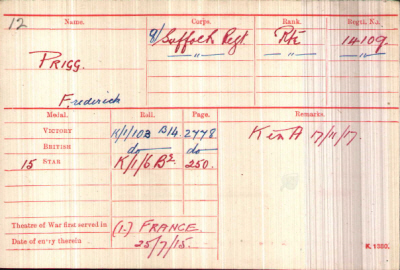 12
Name. Corps. Rank. Regtl. No.
9/Suffolk Regt. Pte 14109.
PRIGG. " " "
Frederick
Medal. Roll. Page. Remarks.
VICTORY K/1/103 B14 2778 K in A 17/11/17.
BRITISH do do
15 STAR K/1/6 B2. 250.
Theatre of War first served in (1.) FRANCE.
Date of entry therein 25/7/15.
K. 1380.